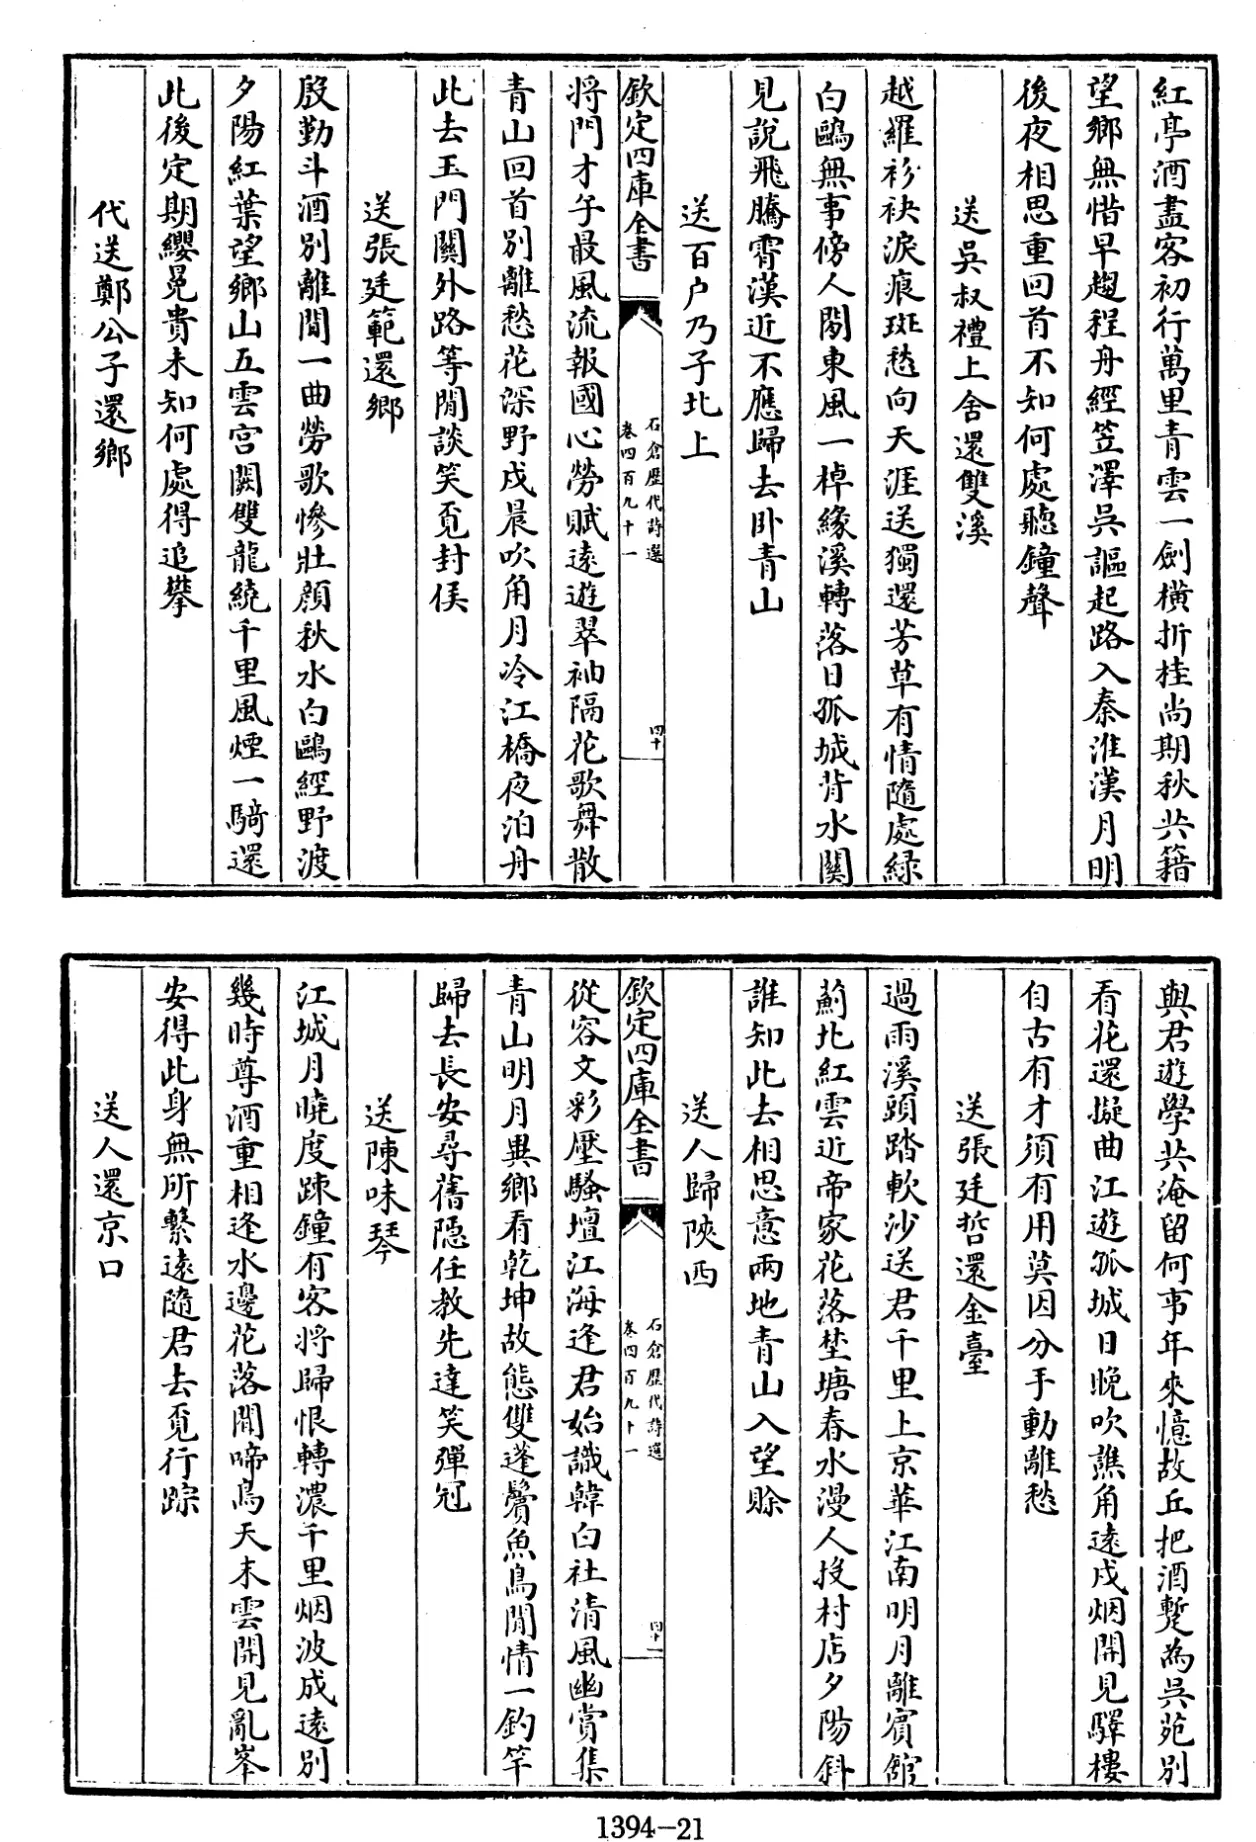 紅亭酒盡客初行萬里青雲一劍横折桂尚期秋共籍
望鄉無惜早趨程舟經笠澤吳謳起路入秦淮漢月明
後夜相思重回首不知何處聽鐘聲
送吳叔禮上舍還雙溪
越羅衫袂淚痕斑愁向天涯送獨還芳草有情隨處緑
白鷗無事傍人閒東風一棹緣溪轉落日孤城背水關
見說飛騰霄漢近不應歸去卧青山
送百户乃子北上
欽定四庫全書
石倉歷代詩選
卷四百九十一
四十
將門才子最風流報國心勞賦逺遊翠袖隔花歌舞散
青山回首别離愁花深野戍晨吹角月冷江橋夜泊舟
此去玉門關外路等閒談笑覓封侯
送張廷範還鄉
殷勤斗酒别離間一曲勞歌慘壯顔秋水白鷗經野渡
夕陽紅葉望鄉山五雲宫闕雙龍繞千里風煙一騎還
此後定期纓冕貴未知何處得追攀
代送鄭公子還鄉
與君遊學共淹留何事年來憶故丘把酒蹔為吳苑别
看花還擬曲江遊孤城日晩吹譙角逺戍烟開見驛樓
自古有才須有用莫因分手動離愁
送張廷哲還金臺
過雨溪頭踏軟沙送君千里上京華江南明月離賓館
薊北紅雲近帝家花落埜塘春水漫人投村店夕陽斜
誰知此去相思意兩地青山入望賒
送人歸陜西
欽定四庫全書
石倉歷代詩選
卷四百九十一
四十一
從容文彩壓騷壇江海逢君始識韓白社清風幽賞集
青山明月異鄉看乾坤故態雙蓬鬢魚鳥閒情一釣竿
歸去長安尋舊隠任教先達笑彈冠
送陳味琴
江城月曉度疎鐘有客將歸恨轉濃千里烟波成逺别
幾時尊酒重相逢水邊花落聞啼鳥天末雲開見亂峯
安得此身無所繫逺隨君去覓行踪
送人還京口
1394—21